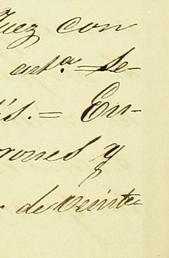 Juez con
asta. se-
is. = En-
rones y
de veinte